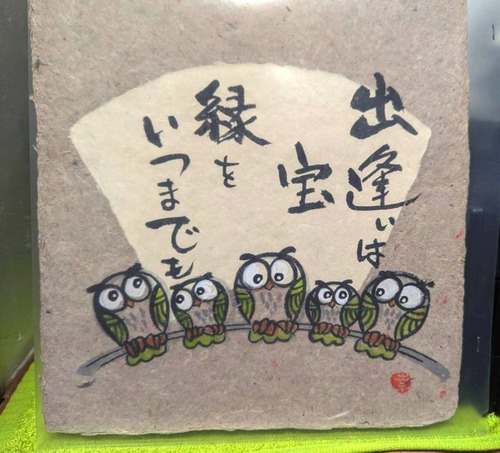 出逢いは
宝
縁を
いつまでも
幸